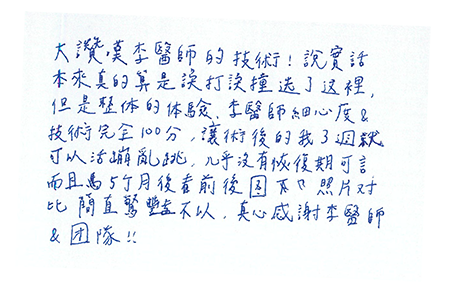 大讚嘆李醫師的技術!說實話
本來真的算是誤打誤撞選了这裡,
但是整体的体驗、李醫師細心度&
技術完全100分,讓術後的我3週就
可以活蹦亂跳,几乎沒有恢復期可言
而且馬5个月後看前後图 照片对
比 簡直驚豔不以,真心感謝李醫師
& 团隊!!